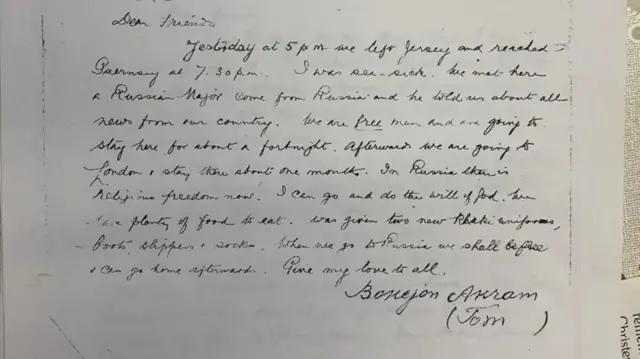 Dear Friends
Yestoday at 5 pm we left Jersey and reached
Guernsey at 7.30 p.m. I was sea-sick. We met here
a Russian Major come from Russia and he told us about all
news from our country. We are free men and are going to
stay here for about a fortnight. Afterwards we are going to
London & stay there about one months. In Russia there is
religious freedom now. I can go and do the will of God. We
have plenty of food to eat. was given two new Khaki uniforms,
Boots, slippers & socks. When we go to Russia we shall be free
& can go home afterward. Give my love to all.
Bokejon Akram
(Tom)
Christe